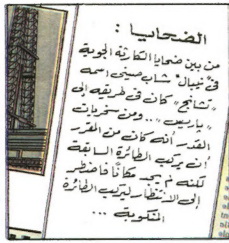 الضحايا :
من بين ضحايا الكارثة الجوية
في "نيبال" شاب صيني اسمه
"تشانج" كان في طريقه إلى
"باريس".. ومن سخريات
القدر أنه كان من المقرر
أن يركب الطائرة السابقة
لكنه لم يجد مكانًا فاضطر
إلى الانتظار ليركب الطائرة
المنكوبة ...